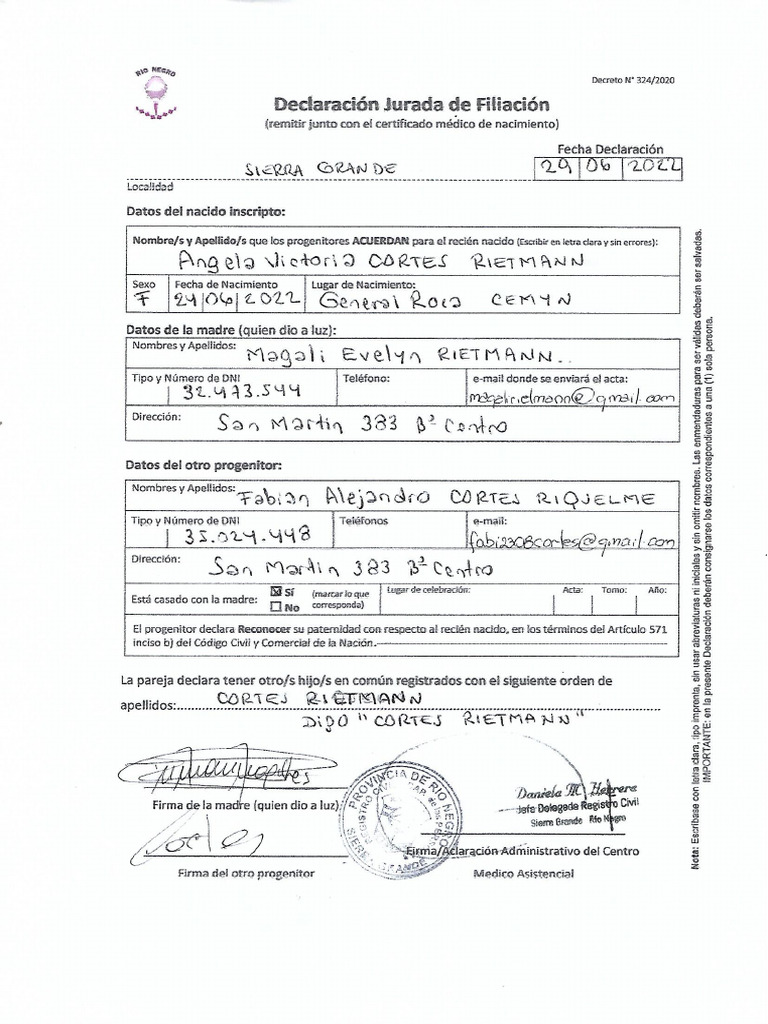 RIO NEGRO
Decreto N° 324/2020
Declaración Jurada de Filiación
(remitir junto con el certificado médico de nacimiento)
Fecha Declaración
SIERRA GRANDE 29 06 2022
Localidad
Datos del nacido inscripto:
Nombre/s y Apellido/s que los progenitores ACUERDAN para el recién nacido (Escribir en letra clara y sin errores):
Angela Victoria CORTES RIETMANN
Sexo Fecha de Nacimiento Lugar de Nacimiento:
F 24 06 2022 General Roca CEMYN
Datos de la madre (quien dio a luz):
Nombres y Apellidos: Magali Evelyn RIETMANN..
Tipo y Número de DNI Teléfono: e-mail donde se enviará el acta:
32.473.544 magalirietmann@gmail.com
Dirección: San Martin 383 Bº Centro
Datos del otro progenitor:
Nombres y Apellidos: Fabian Alejandro CORTES RIQUELME
Tipo y Número de DNI Teléfonos e-mail:
35.024.448 fabi2308cortes@gmail.com
Dirección: San Martin 383 Bº Centro
Está casado con la madre: Sí (marcar lo que Lugar de celebración: Acta: Tomo: Año:
No corresponda)
El progenitor declara Reconocer su paternidad con respecto al recién nacido, en los términos del Artículo 571
inciso b) del Código Civil y Comercial de la Nación.
La pareja declara tener otro/s hijo/s en común registrados con el siguiente orden de
apellidos: CORTES RIETMANN
DIGO "CORTES RIETMANN"
Firma de la madre (quien dio a luz)
Daniela M. Herrera
Jefa Delegada Registro Civil
Sierra Grande Río Negro
PROVINCIA DE RIO NEGRO
SIERRA GRANDE
Cortes
Firma/Aclaración Administrativo del Centro
Firma del otro progenitor Medico Asistencial
Nota: Escríbase con letra clara, tipo imprenta, sin usar abreviaturas ni iniciales y sin omitir nombres. Las enmendaduras para ser válidas deberán ser salvadas.
IMPORTANTE: en la presente Declaración deberán consignarse los datos correspondientes a una (1) sola persona.